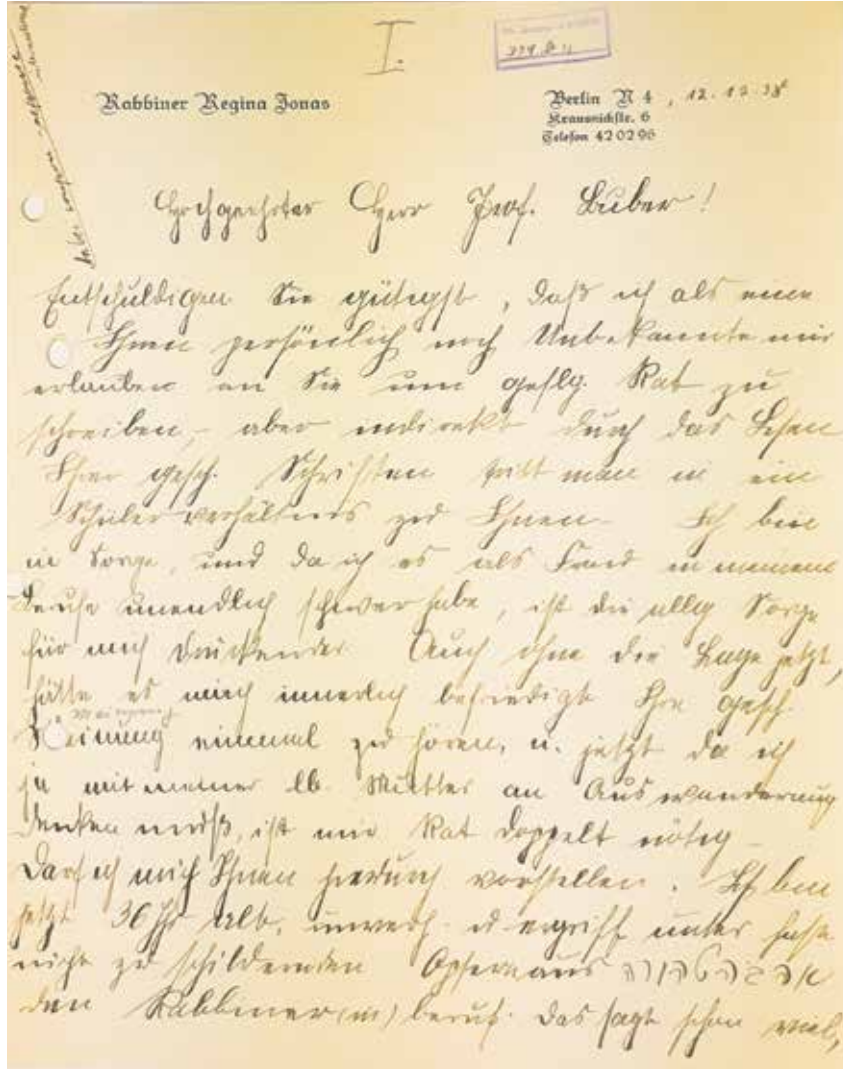 I.
Rabbiner Regina Jonas
Berlin N 4, 12.12.38
Krausnickstr. 6
Telefon 42 02 96
Hochgeehrter Herr Prof. Buber!
Entschuldigen Sie gütigst, daß ich als eine
Ihnen persönlich noch Unbekannte mir
erlaube an Sie um geflg. Rat zu
schreiben, - aber indirekt durch das Lesen
Ihrer gesch. Schriften tritt man in ein
Schülerverhältnis zu Ihnen. Ich bin
in Sorge, und da ich es als Frau in meinem
Berufe unendlich schwer habe, ist die allg Sorge
für mich drückender. Auch ohne die Lage jetzt,
hätte es mich innerlich befriedigt Ihre gesch
Meinung
Meinung einmal zu hören, u. jetzt da ich
ja mit meiner lb. Mutter an Auswanderung
denken muß, ist mir Rat doppelt nötig -
Darf ich mich Ihnen hierdurch vorstellen. Ich bin
jetzt 36 Jhr alt, unverh. u ergriff unter fast
nicht zu schildernden Opfern aus
den Rabbiner(in)beruf. Das sagt schon viel,